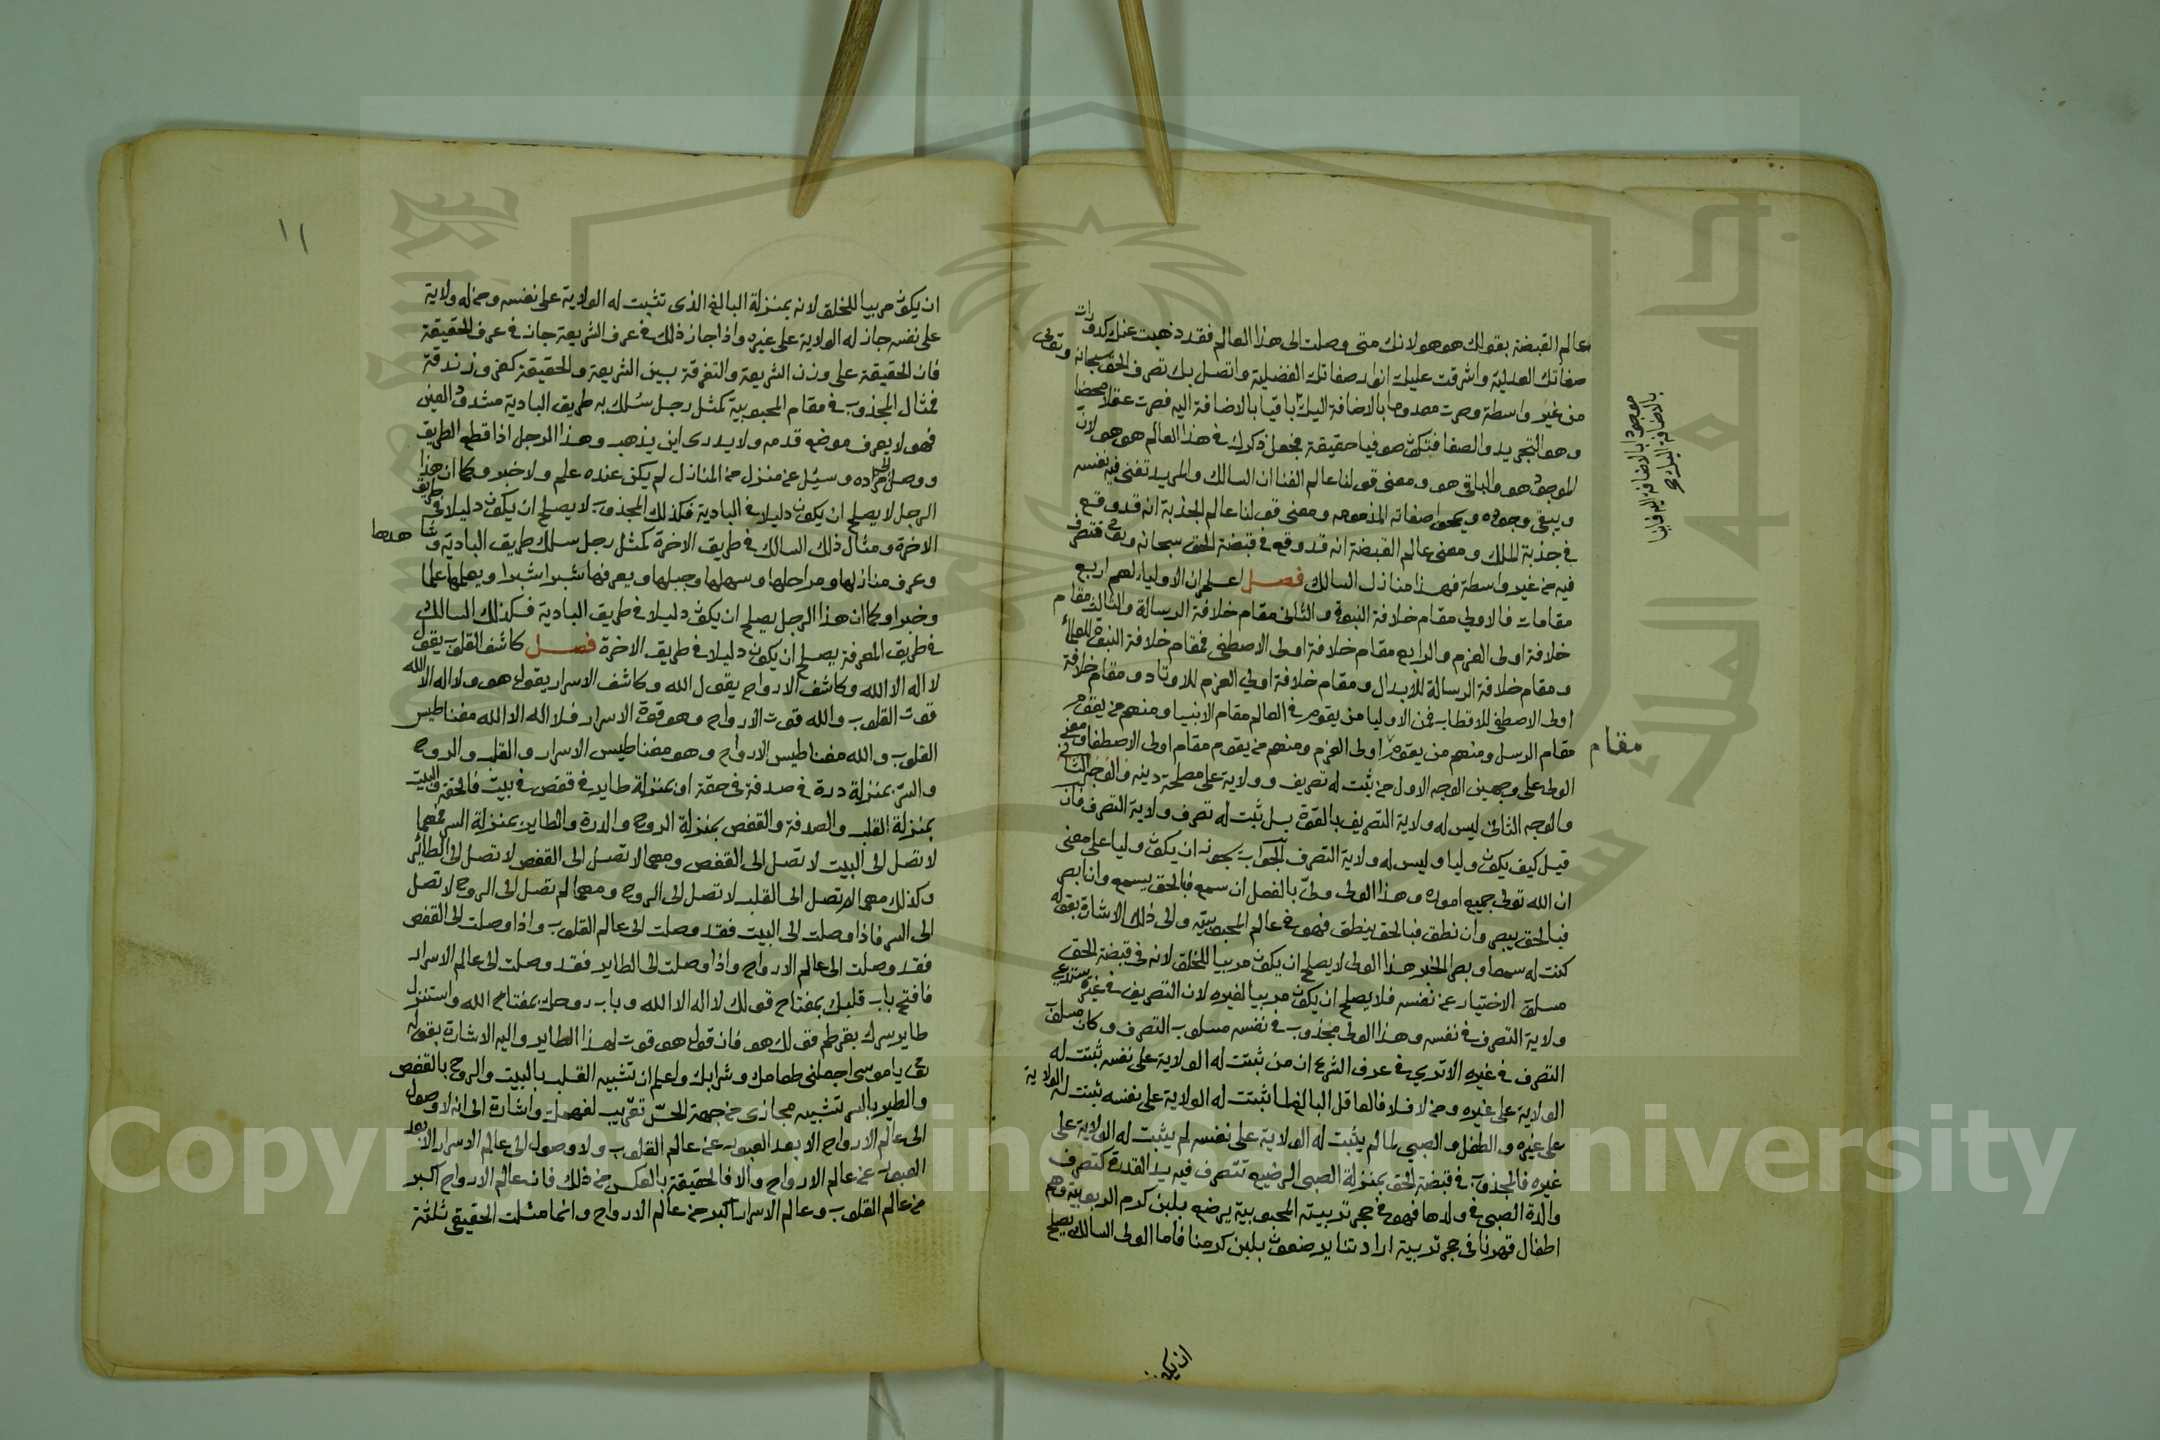 عالم القبضة بقولك هو هو لانك متى وصلت الى هذا العالم فقد ذهبت عنك كدورات
صفاتك العدلية واشرقت عليك انوار صفاتك الفضلية واتصل بك تصرف الحق سبحانه وتعالى
من غير واسطة وصرت معدوما بالاضافة اليك باقيا بالاضافة اليه فصرت عقلا محضا
وهو التجريد والصفا فتكون صوفيا حقيقة فجعل ذكرك في هذا العالم هو هو لان
الموجود هو والباقي هو ومعنى قولنا عالم الفنا ان السالك والمريد تفنى فيه نفسه
ويبقى وجوده ويمحوا صفاته المذمومه ومعنى قولنا عالم الجذبة انه قد وقع
في جذبة الملك ومعنى عالم القبضة انه قد وقع في قبضة الحق سبحانه وتعالى فتصرف
فيه من غير واسطة فهذا منازل السالك فصل اعلم ان الاولياء لهم اربع
مقامات فالاولى مقام خلافة النبوة والثاني مقام خلافة الرسالة والثالث مقام
خلافة اولى العزم والرابع مقام خلافة اولى الاصطفى فمقام خلافة النبوة للعلما
ومقام خلافة الرسالة للابدال ومقام خلافة اولي العزم للاوتاد ومقام خلافة
اولى الاصطفى للاقطاب فمن الاوليا من يقوم في العالم مقام الانبيا ومنهم من يقوم
مقام الرسل ومنهم من يقوم اولى العزم ومنهم من يقوم مقام اولى الاصطفا ومعنى
مقام
الولي على وجهين الوجه الاول من ثبت له تصريف وولاية على مصلحة دينه والوجه الثاني
والوجه الثاني ليس له ولاية التصريف بالقوة بل ثبت له تصرف وولاية التصرف فان
قيل كيف يكون وليا وليس له ولاية التصرف الجواب يجوز ان يكون وليا على معنى
ان الله تولى جميع اموره وهذا الولي ولي بالفصل ان سمع فبالحق يسمع وان ابصر
فبالحق يبصر وان نطق فبالحق ينطق فهو في عالم المحبوبيته والى ذلك الاشارة بقوله
كنت له سمعا وبصرا الخبر هذا الولي لا يصلح ان يكون مربيا للخلق لانه في قبضة الحق
مسلوب الاختيار عن نفسه فلا يصلح ان يكون مربيا لغيره لان التصريف في غيره يستدعي
ولاية التصرف في نفسه وهذا الولي مجذوب في نفسه مسلوب التصرف وكان مسلوب
التصرف في غيره الا ترى في عرف الشرع ان من ثبتت له الولاية على نفسه ثبتت له
الولاية على غيره ومن لا فلا فالعاقل البالغ لما ثبتت له الولاية على نفسه ثبتت له الولاية
على غيره والطفل والصبي لما لم يثبت له الولاية على نفسه لم يثبت له الولاية على
غيره فالمجذوب في قبضة الحق بمنزلة الصبي الرضيع تتصرف فيه يد القدرة كتصرف
والدة الصبي في ولدها فهو في حجر تربيته المحبوبية يرضع بلبن كرم الربوبية وهم
اطفال قهرنا في حجر تربية ارادتنا يرضعون بلبن كرمنا فاما الولي السالك يصلح
ان يكون
١١
ان يكون مربيا للخلق لانه بمنزلة البالغ الذي تثبت له الولاية على نفسه ومن له ولاية
على نفسه جاز له الولاية على غيره واذا جاز ذلك في عرف الشريعة جاز في عرف الحقيقة
فان الحقيقة على وزن الشريعة والتفرقة بين الشريعة والحقيقة كفر وزندقة
فمثال المجذوب في مقام المحبوبية كمثل رجل سلك به طريق البادية مشدود العين
فهو لا يعرف موضع قدمه ولا يدرى اين يذهب وهذا الرجل اذا قطع الطريق
ووصل الى مراده وسئل عن منزل من المنازل لم يكن عنده علم ولا خبر وكما ان هذا
الرجل لا يصلح ان يكون دليلا في البادية فكذلك المجذوب لا يصلح ان يكون دليلا في طريق
الاخرة ومثال ذلك السالك في طريق الاخرة كمثل رجل سلك طريق البادية وشاهدها
وعرف منازلها ومراحلها وسهلها وجبلها ويعرفها شبرا شبرا ويعلمها علما
وخبرا وكما ان هذا الرجل يصلح ان يكون دليلا في طريق البادية فكذلك السالك
في طريق المعرفة يصلح ان يكون دليلا في طريق الاخرة فصل كاشف القلوب يقول
لا اله الا الله وكاشف الارواح يقول الله وكاشف الاسرار يقول هو ولا اله الا الله
قوت القلوب والله قوت الارواح وهو قوة الاسرار فلا اله الا الله مغناطيس
القلوب والله مغناطيس الارواح وهو مغناطيس الاسرار والقلب والروح
والسر بمنزلة درة في صدفة في حقة او بمنزلة طاير في قفص في بيت فالحقة والبيت
بمنزلة القلب والصدفة والقفص بمنزلة الروح والدرة والطاير بمنزلة السر فمهما
لا تصل الى البيت لا تصل الى القفص ومهما لا تصل الى القفص لا تصل الى الطائر
وكذلك مهما لا تصل الى القلب لا تصل الى الروح ومهما لم تصل الى الروح لا تصل
الى السر فاذا وصلت الى البيت فقد وصلت الى عالم القلوب واذا وصلت الى القفص
فقد وصلت الى عالم الارواح واذا وصلت الى الطاير فقد وصلت الى عالم الاسرار
فافتح باب قلبك بمفتاح قولك لا اله الا الله وباب روحك بمفتاح الله واستنزل
طاير سرك بقرطم قولك هو فان قول هو قوت لهذا الطاير واليه الاشارة بقوله
يا موسى اجعلني طعامك وشرابك واعلم ان تشبيه القلب بالبيت والروح بالقفص
والطير بالسر تشبيه مجازى من جهة الحس تقريب لفهمك واشارة الى انه لا وصول
الى عالم الارواح الا بعد العبور عن عالم القلوب ولا وصول الى عالم الاسرار الا بعد
العبور عن عالم الارواح والا فالحقيقة بالعكس من ذلك فان عالم الارواح اكبر
من عالم القلوب وعالم الاسرار اكبر من عالم الارواح وانما مثلت الحقيقي ثلثة